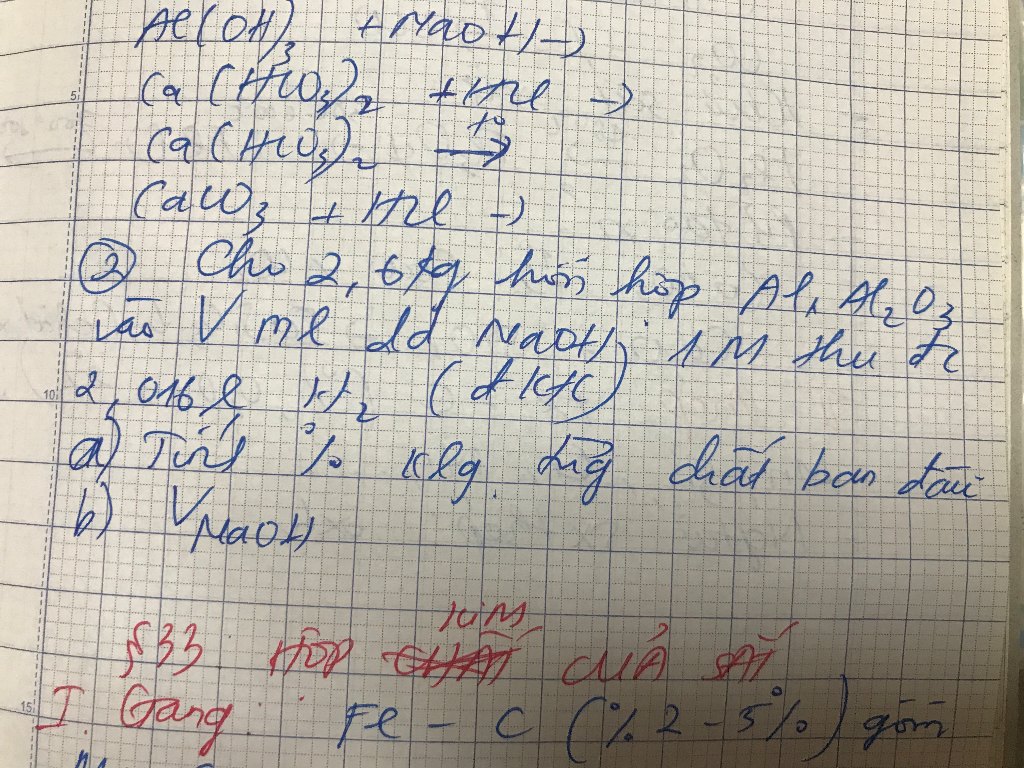 Al(OH)3 + NaOH →
5
Ca(HCO3)2 + HCl →
Ca(HCO3)2 t° →
CaCO3 + HCl →
② Cho 2,64g hỗn hợp Al, Al2O3
vào V ml dd NaOH 1M thu đc
10
2,016 l H2 (đktc)
a) Tính % klg từng chất ban đầu
b) V NaOH
§33 HỢP KIM CỦA SẮT
15
I. Gang: Fe - C (% 2-5%) gồm